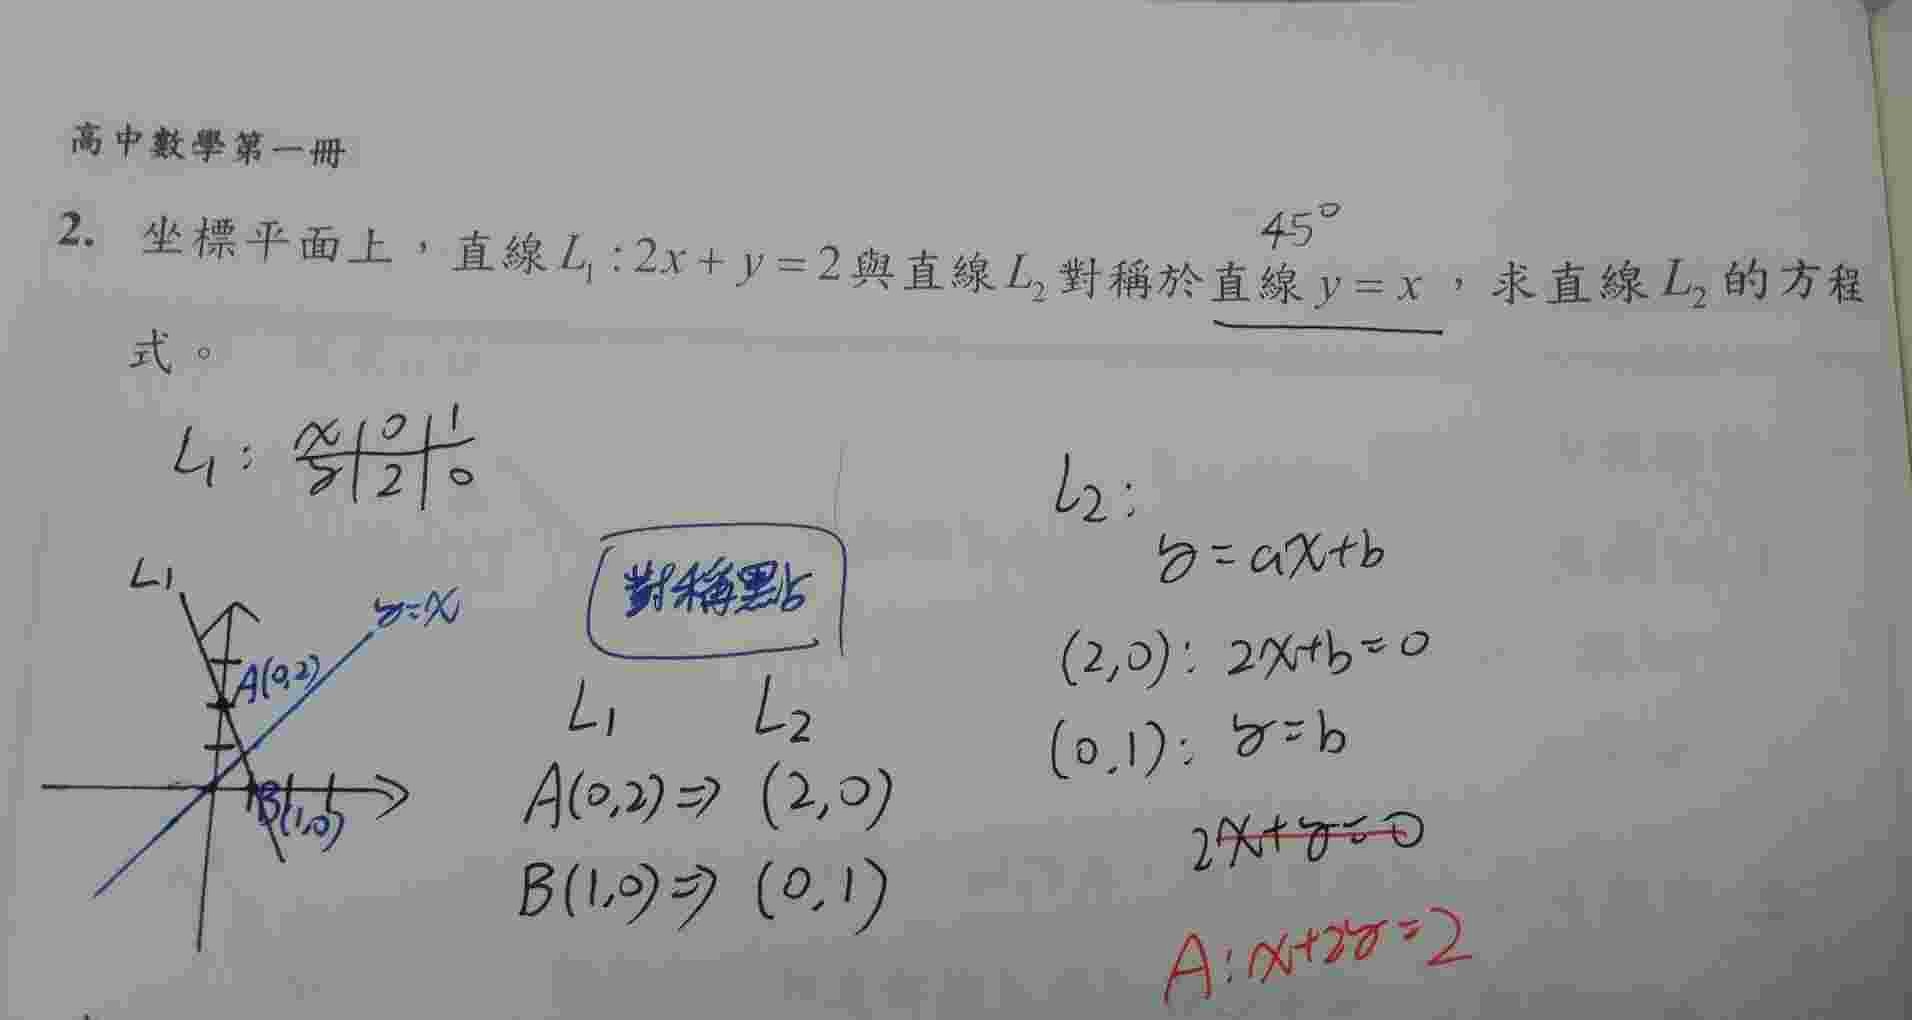 高中數學第一冊
45°
2. 坐標平面上，直線 L₁ : 2x + y = 2 與直線 L₂ 對稱於直線 y = x ，求直線 L₂ 的方程
式。
L₁ : x 0 1
y 2 0
L₁
y=x
A(0,2)
B(1,0)
對稱點
L₁ L₂
A(0,2)⇒ (2,0)
B(1,0)⇒ (0,1)
L₂ :
y = ax+b
(2,0): 2x+b=0
(0,1): y=b
2x+y=0
A: x+2y=2